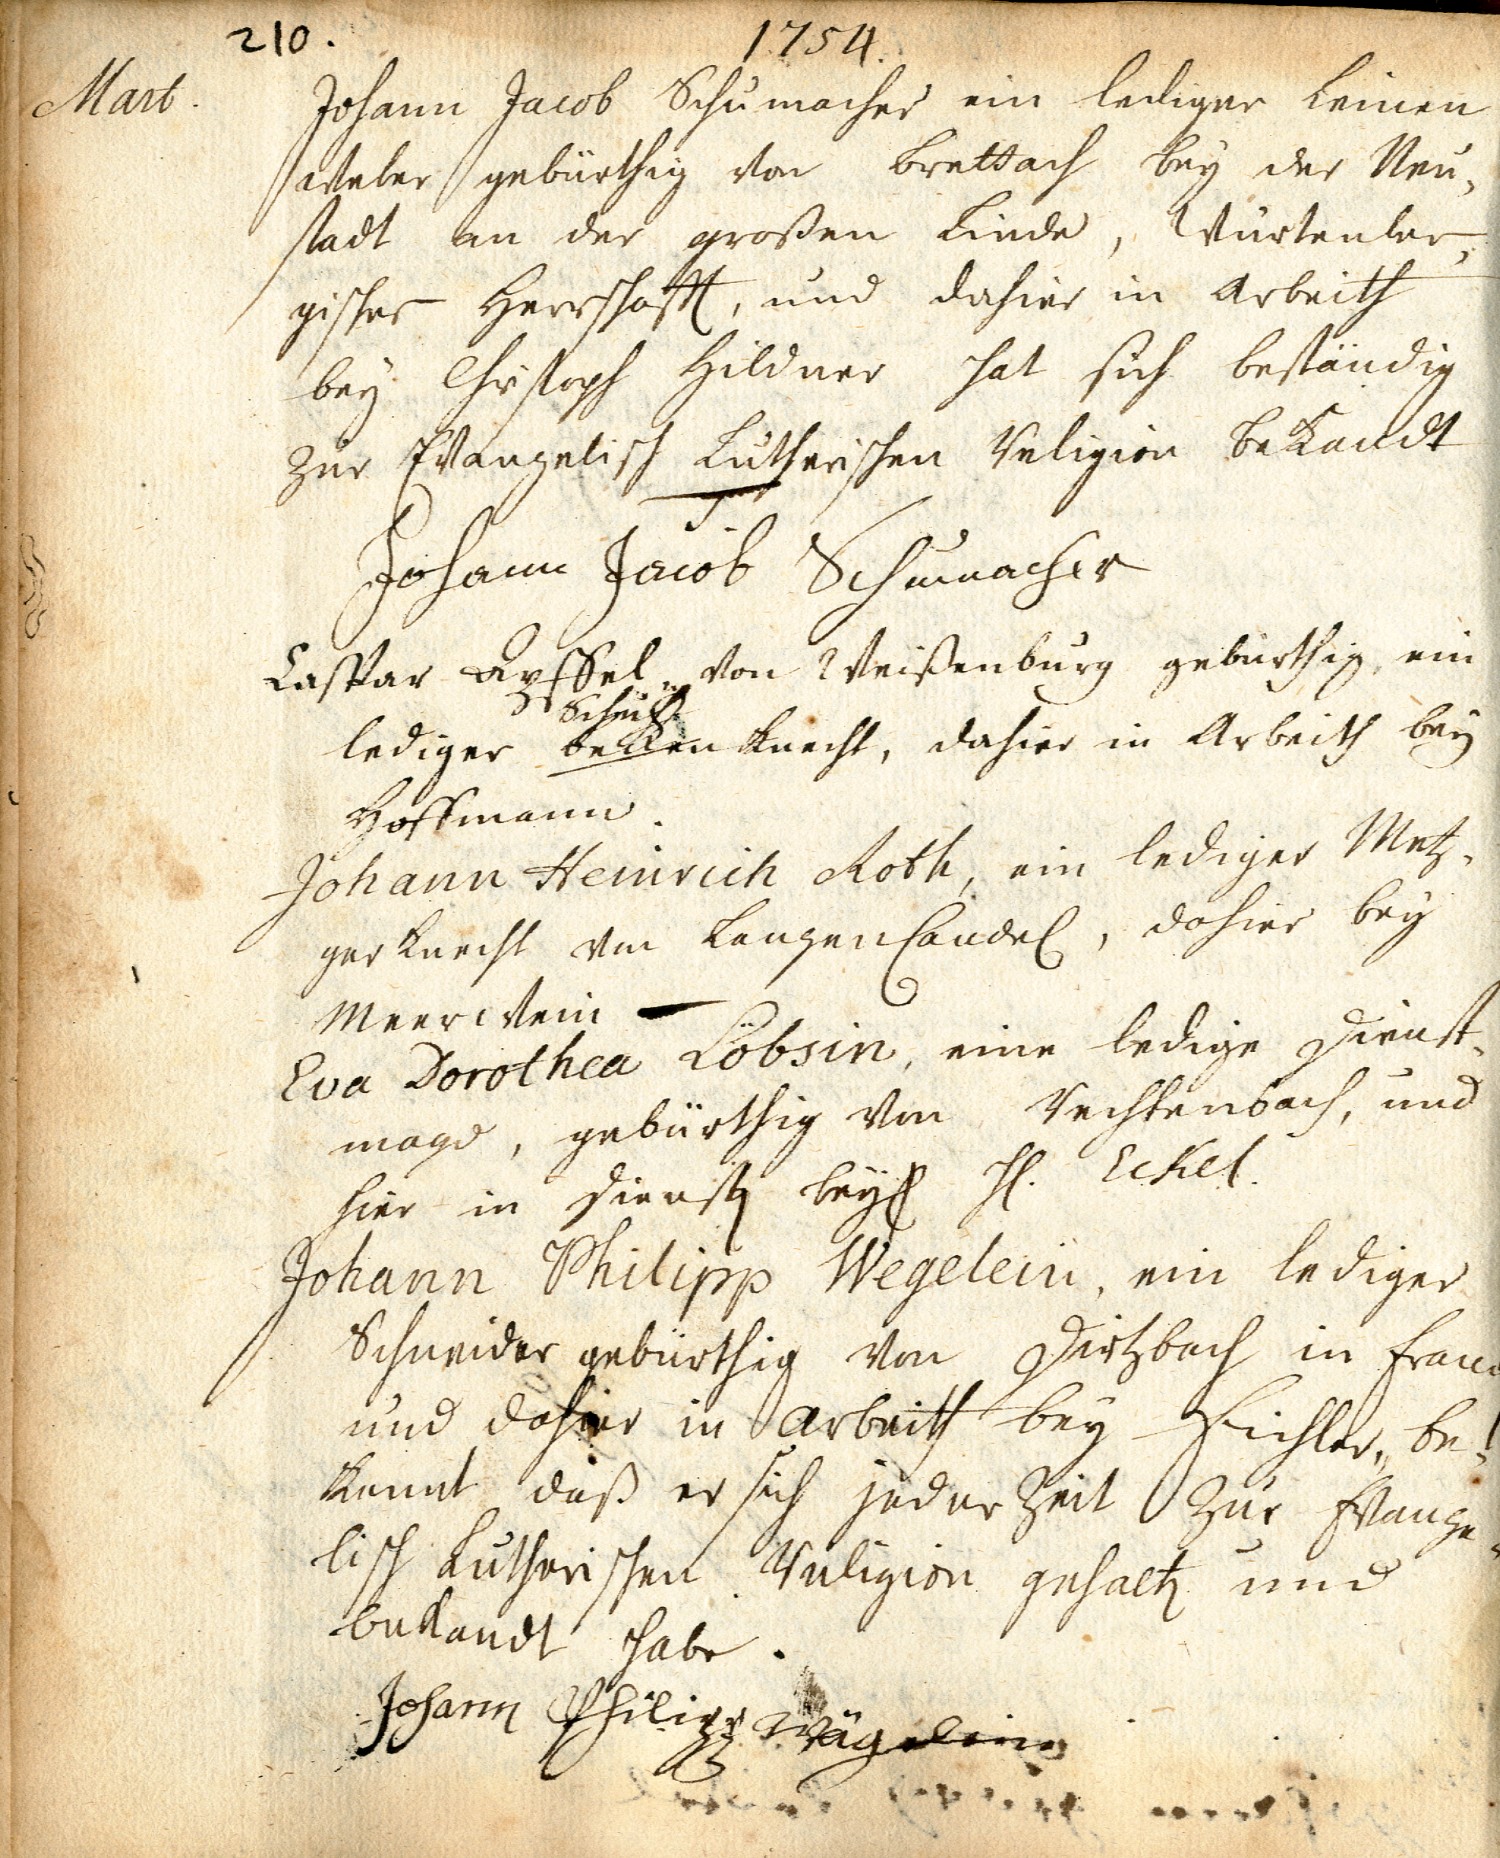 210.
1754.
Mart.
Johann Jacob Schumacher ein lediger Leinen
weber gebürthig von Brettach bey der Neu-
stadt an der großen Linde, Würtenber-
gischer Herrschafft, und dahier in Arbeith
bey Christoph Hildner hat sich beständig
zur Evangelisch Lutherischen Religion bekandt
Johann Jacob Schumacher
Caspar von Weißenburg gebürthig, ein
Schuh
lediger becken knecht, dahier in Arbeith bey
Hoffmann.
Johann Heinrich Roth, ein lediger Metz-
gerknecht von LangenCandel, dahier bey
Meerwein
Eva Dorothea Löbsin, eine ledige Dienst-
magd, gebürthig von Rechtenbach, und
hier in Diensten bey H. Eckel.
Johann Philipp Wegelein, ein lediger
Schneider gebürthig von Dirtzbach in
und dahier in Arbeith bey Eichler, be-
kennt daß er sich jeder Zeit zur Evange-
lisch Lutherischen Religion gehalten und
bekandt habe.
Johann Philipp Wägelein